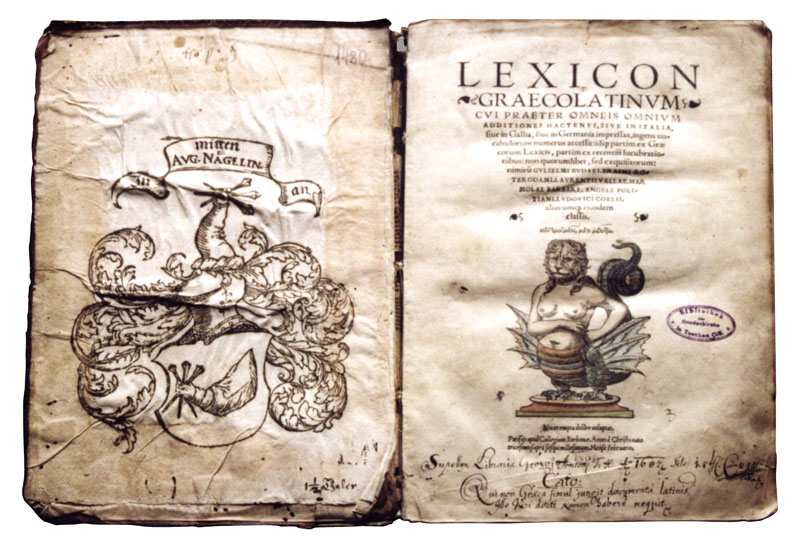 1480
mitten
AVG. NÄGELIN.
in
an
1½ Thaler
LEXICON
GRAECOLATINVM
CVI PRAETER OMNEIS OMNIVM
ADDITIONES HACTENVS, SIVE IN ITALIA,
siue in Gallia, siue in Germania impressas, ingens uo-
cabulorum numerus accessit: idq; partim ex Græ
corum Lexicis, partim ex recentiū lucubratio-
nibus: non quorumlibet, sed exquisitorum:
nimirū GVLIELMI BVDAEI, ERASMI RO-
TERODAMI, LAVRENTII VALLAE, HER
MOLAI BARBARI, ANGELI POLI-
TIANI, LVDOVICI COELII,
aliorumq; eiusdem
classis.
Bibliothek
der
Gnadenkirche
in Teschen
Nocet empta dolore voluptas.
Parisijs apud Collegium Sorbonæ. Anno à Christo nato
Mense Februario.
Libraria Georgij
Cato:
Qui non Græca simul jungit documenta latinis
docti nomen habere nequit.